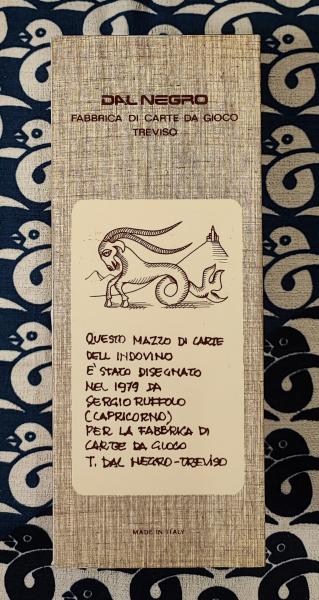 DAL NEGRO
FABBRICA DI CARTE DA GIOCO
TREVISO
QUESTO MAZZO DI CARTE
DELL INDOVINO
E' STATO DISEGNATO
NEL 1979 DA
SERGIO RUFFOLO
(CAPRICORNO)
PER LA FABBRICA DI
CARTE DA GIOCO
T. DAL NEGRO-TREVISO
MADE IN ITALY